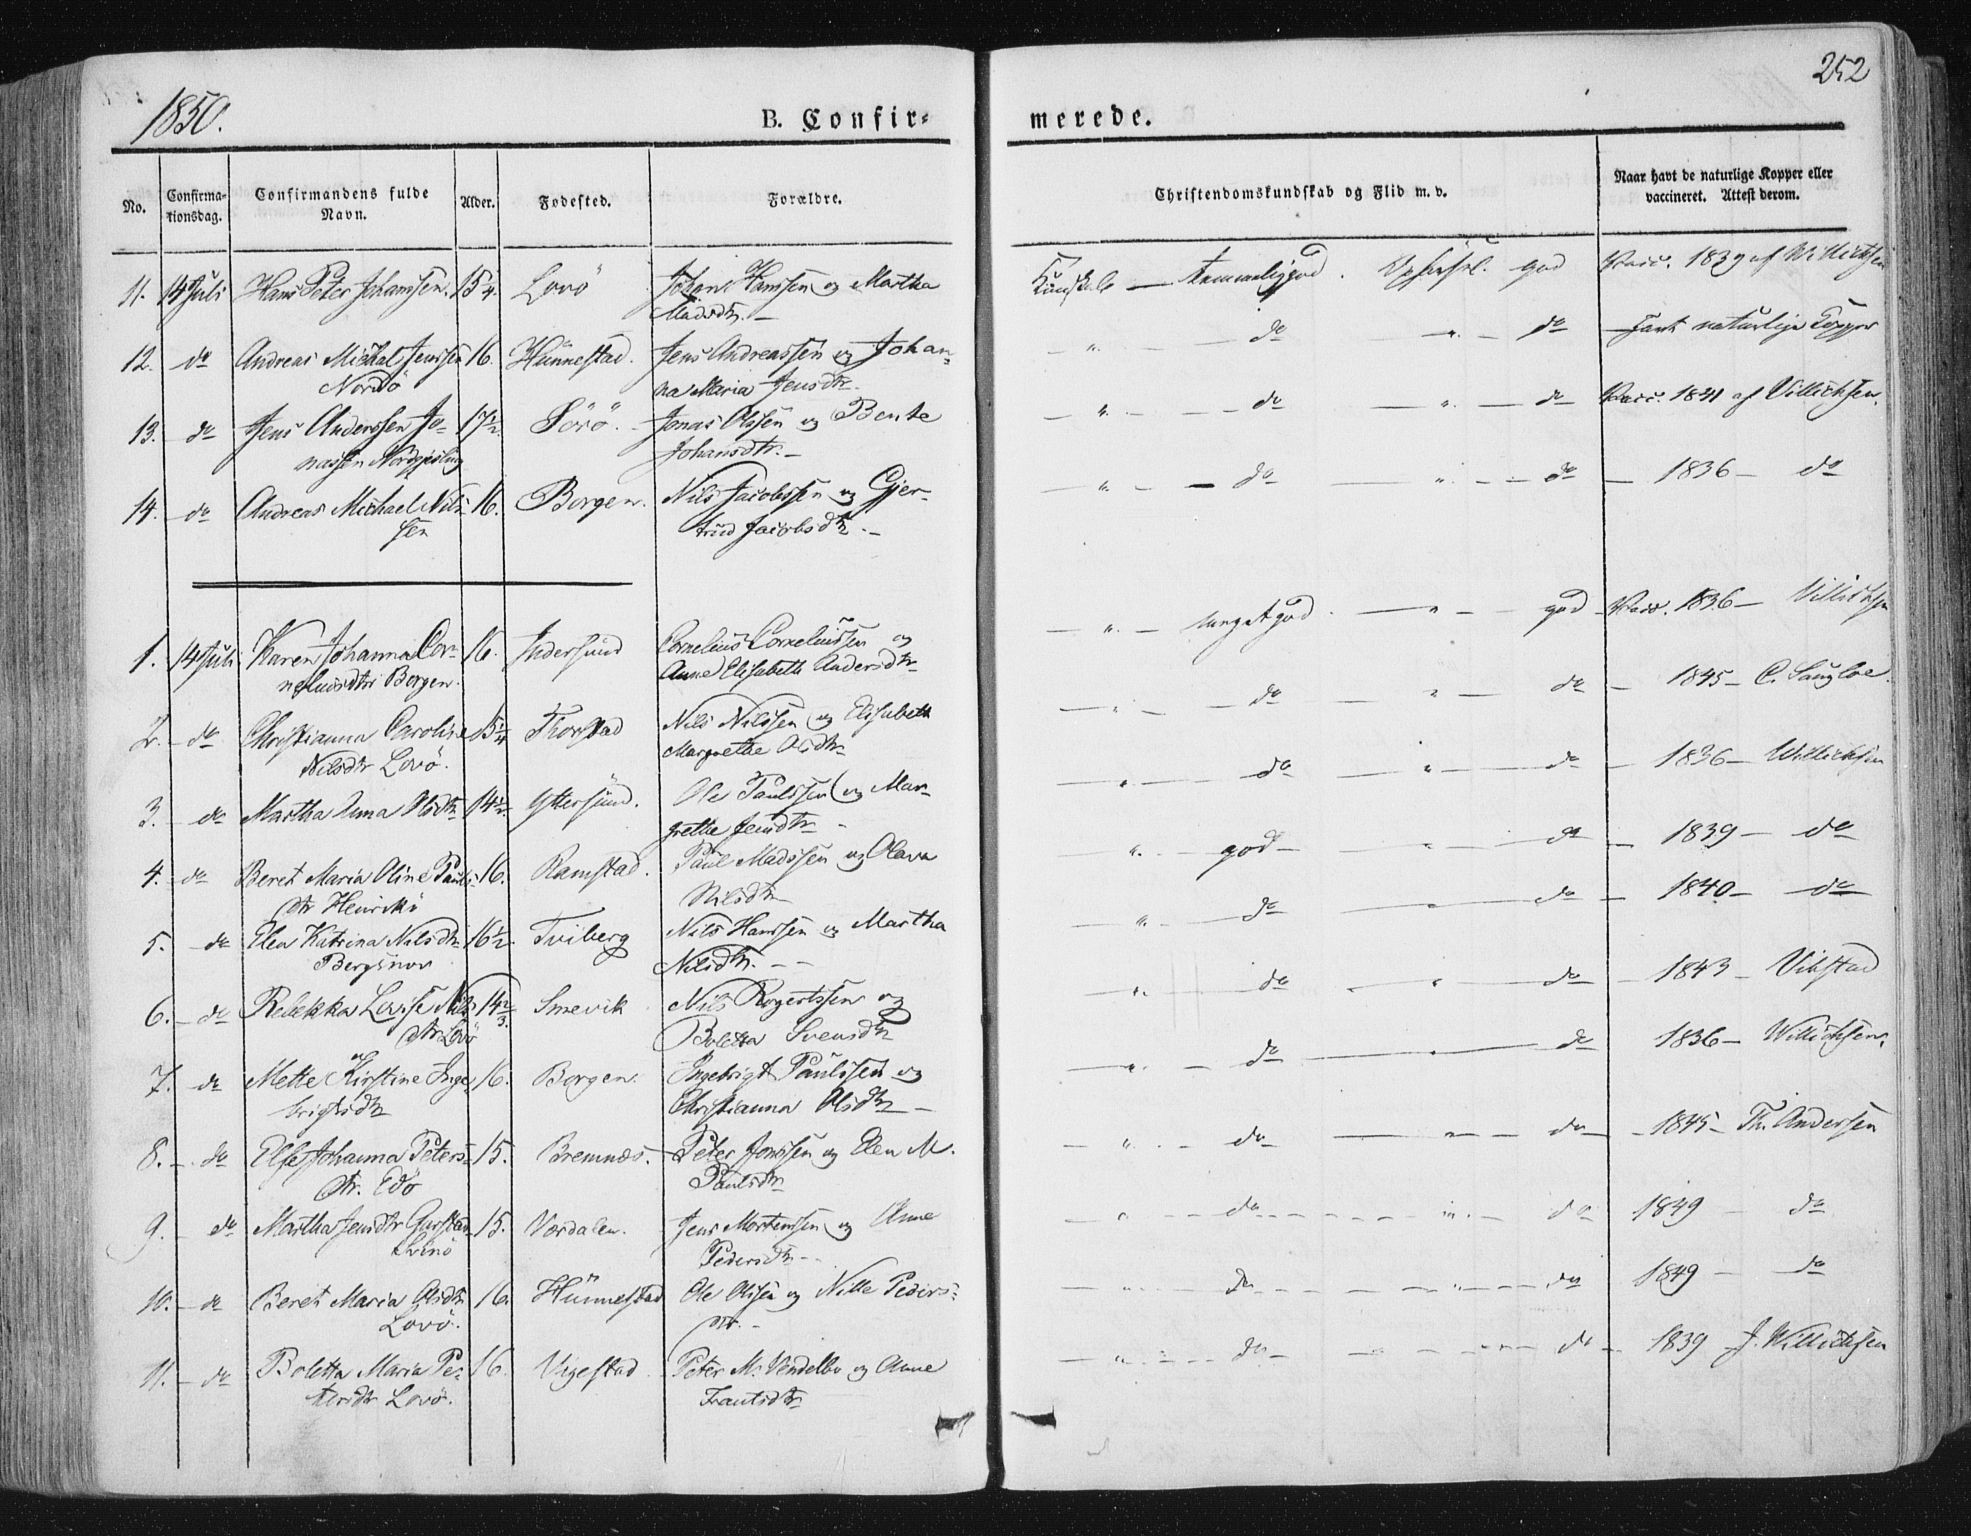 252
1850.
B. Confir-
merede.
No.
Confirma-
tionsdag.
Confirmandens fulde
Navn.
Alder.
Fødested.
Forældre.
Christendomskundskab og Flid m. v.
Naar havt de naturlige Kopper eller
vaccineret. Attest derom.
11. 14 Juli Hans Peter Johanssen. 15 1/4. Lovö Johan Hanssen og Martha Kundskab — temmelig god. Opførsel. god Vacc. 1839 af Willichsen
Madsdtr. —
12. do Andreas Michal Jenssen 16. Hünnestad. Jens Andreassen og Johan- — " — do — " — do havt naturlige Kopper
Nordö na Maria Jensdtr.
13. — do Jens Anderssen Jo- 17 1/2. Sörö. Jonas Olssen og Bente — " — do — " — do Vacc. 1841 af Villichsen.
nassen Johansdtr. —
14. — do Andreas Michael Nils- 16. Borgen. Nils Jacobssen og Gjer- — " — do — " — do — 1836 — do
sen trud Jacobsdtr. —
1. 14 Juli Karen Johanna Cor- 16. Indersund Cornelius Corneliussen og — " — meget god. — " — god Vacc. 1836 — Villichsen
neliusdtr Borgen. Anne Elisabeth Andersdtr
2. — do Christianna Caroline 15 1/4 Thorstad Nils Nilssen og Elisabeth — " — do — " — do — 1845 — C.
Nilsdtr Lovö. Margrethe Olsdtr
3. — do Martha Anna Olsdtr 14 1/2. Yttersund. Ole Paulssen og Mar- — " — do — " — do — 1836 — Willichsen
grethe Jensdtr —
4. — do Beret Maria Oline Pauls- 16. Ramstad. Paul Madssen og Olava — " — god — " — do — 1839 — do
dtr Nilsdtr
5. — do Elen Katrina Nilsdtr 16 1/2. Tviberg Nils Hanssen og Martha — " — do — " — do — 1840 — do
Nilsdtr. —
6. — do Rebekka Lovise Nils- 14 2/3. Smevik Nils Rogertssen og — " — do — " — do — 1843 — Vibstad
dtr Lovö Boletta Svensdtr
7. — do Mette Kirstine Inge- 16. Borgen. Ingebrigt Paulssen og — " — do — " — do 1836 — Willichsen.
brigtsdtr Christianna Olsdtr —
8. — do Else Johanna Peters- 15. Bremnæs. Peter Jenssen og Elen M. — " — do — " — do — 1845 — Th. Andersen
dtr. Edö Paulsdtr
9. — do Martha Jensdtr 15. Værdalen. Jens Mortenssen og Anne — " — do — " — do 1849 — do
Pedersdtr —
10. — do Beret Maria Olsdtr 16. Hünnestad Ole Olssen og Nille Peders- — " — do — " — do 1849 — do
Lovö. dtr. —
11. — do Boletta Maria Pe- 16. Vigestad. Peter M. Vendelbo og Anne — " — do — " — do — 1839 J. Willichsen
tersdtr Lovö. Frantsdtr